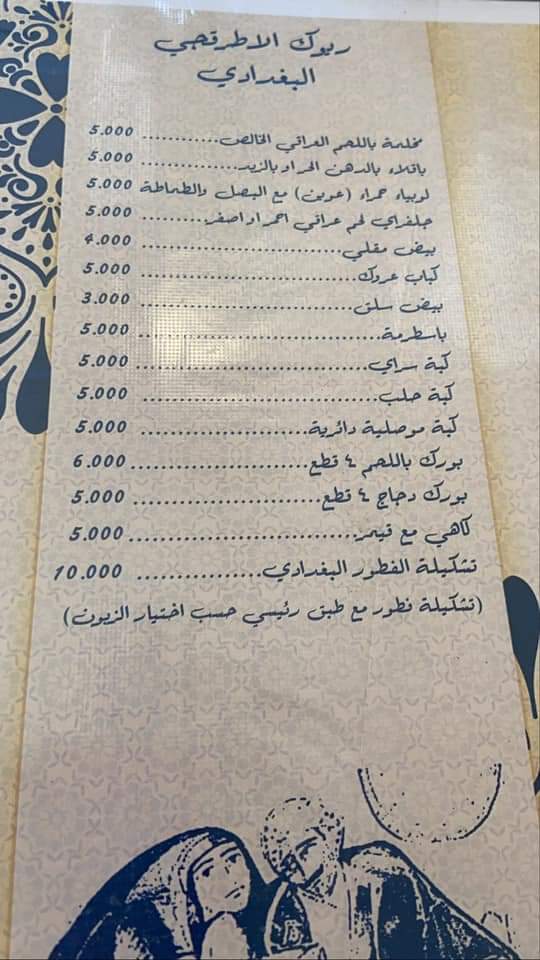 ريوك الاطرقجي
البغدادي
مخلمة باللحم العراقي الخالص............ 5.000
باقلاء بالدهن الحر او بالزبد............ 5.000
لوبياء حمراء (عوين) مع البصل والطماطة 5.000
جلفراي لحم عراقي احمر او اصفر............ 5.000
بيض مقلي............ 4.000
كباب عروك............ 5.000
بيض سلق............ 3.000
باسطرمة............ 5.000
كبة سراي............ 5.000
كبة حلب............ 5.000
كبة موصلية دائرية............ 5.000
بورك باللحم ٤ قطع............ 6.000
بورك دجاج ٤ قطع............ 5.000
كاهي مع قيمر............ 5.000
تشكيلة الفطور البغدادي............ 10.000
(تشكيلة فطور مع طبق رئيسي حسب اختيار الزبون)